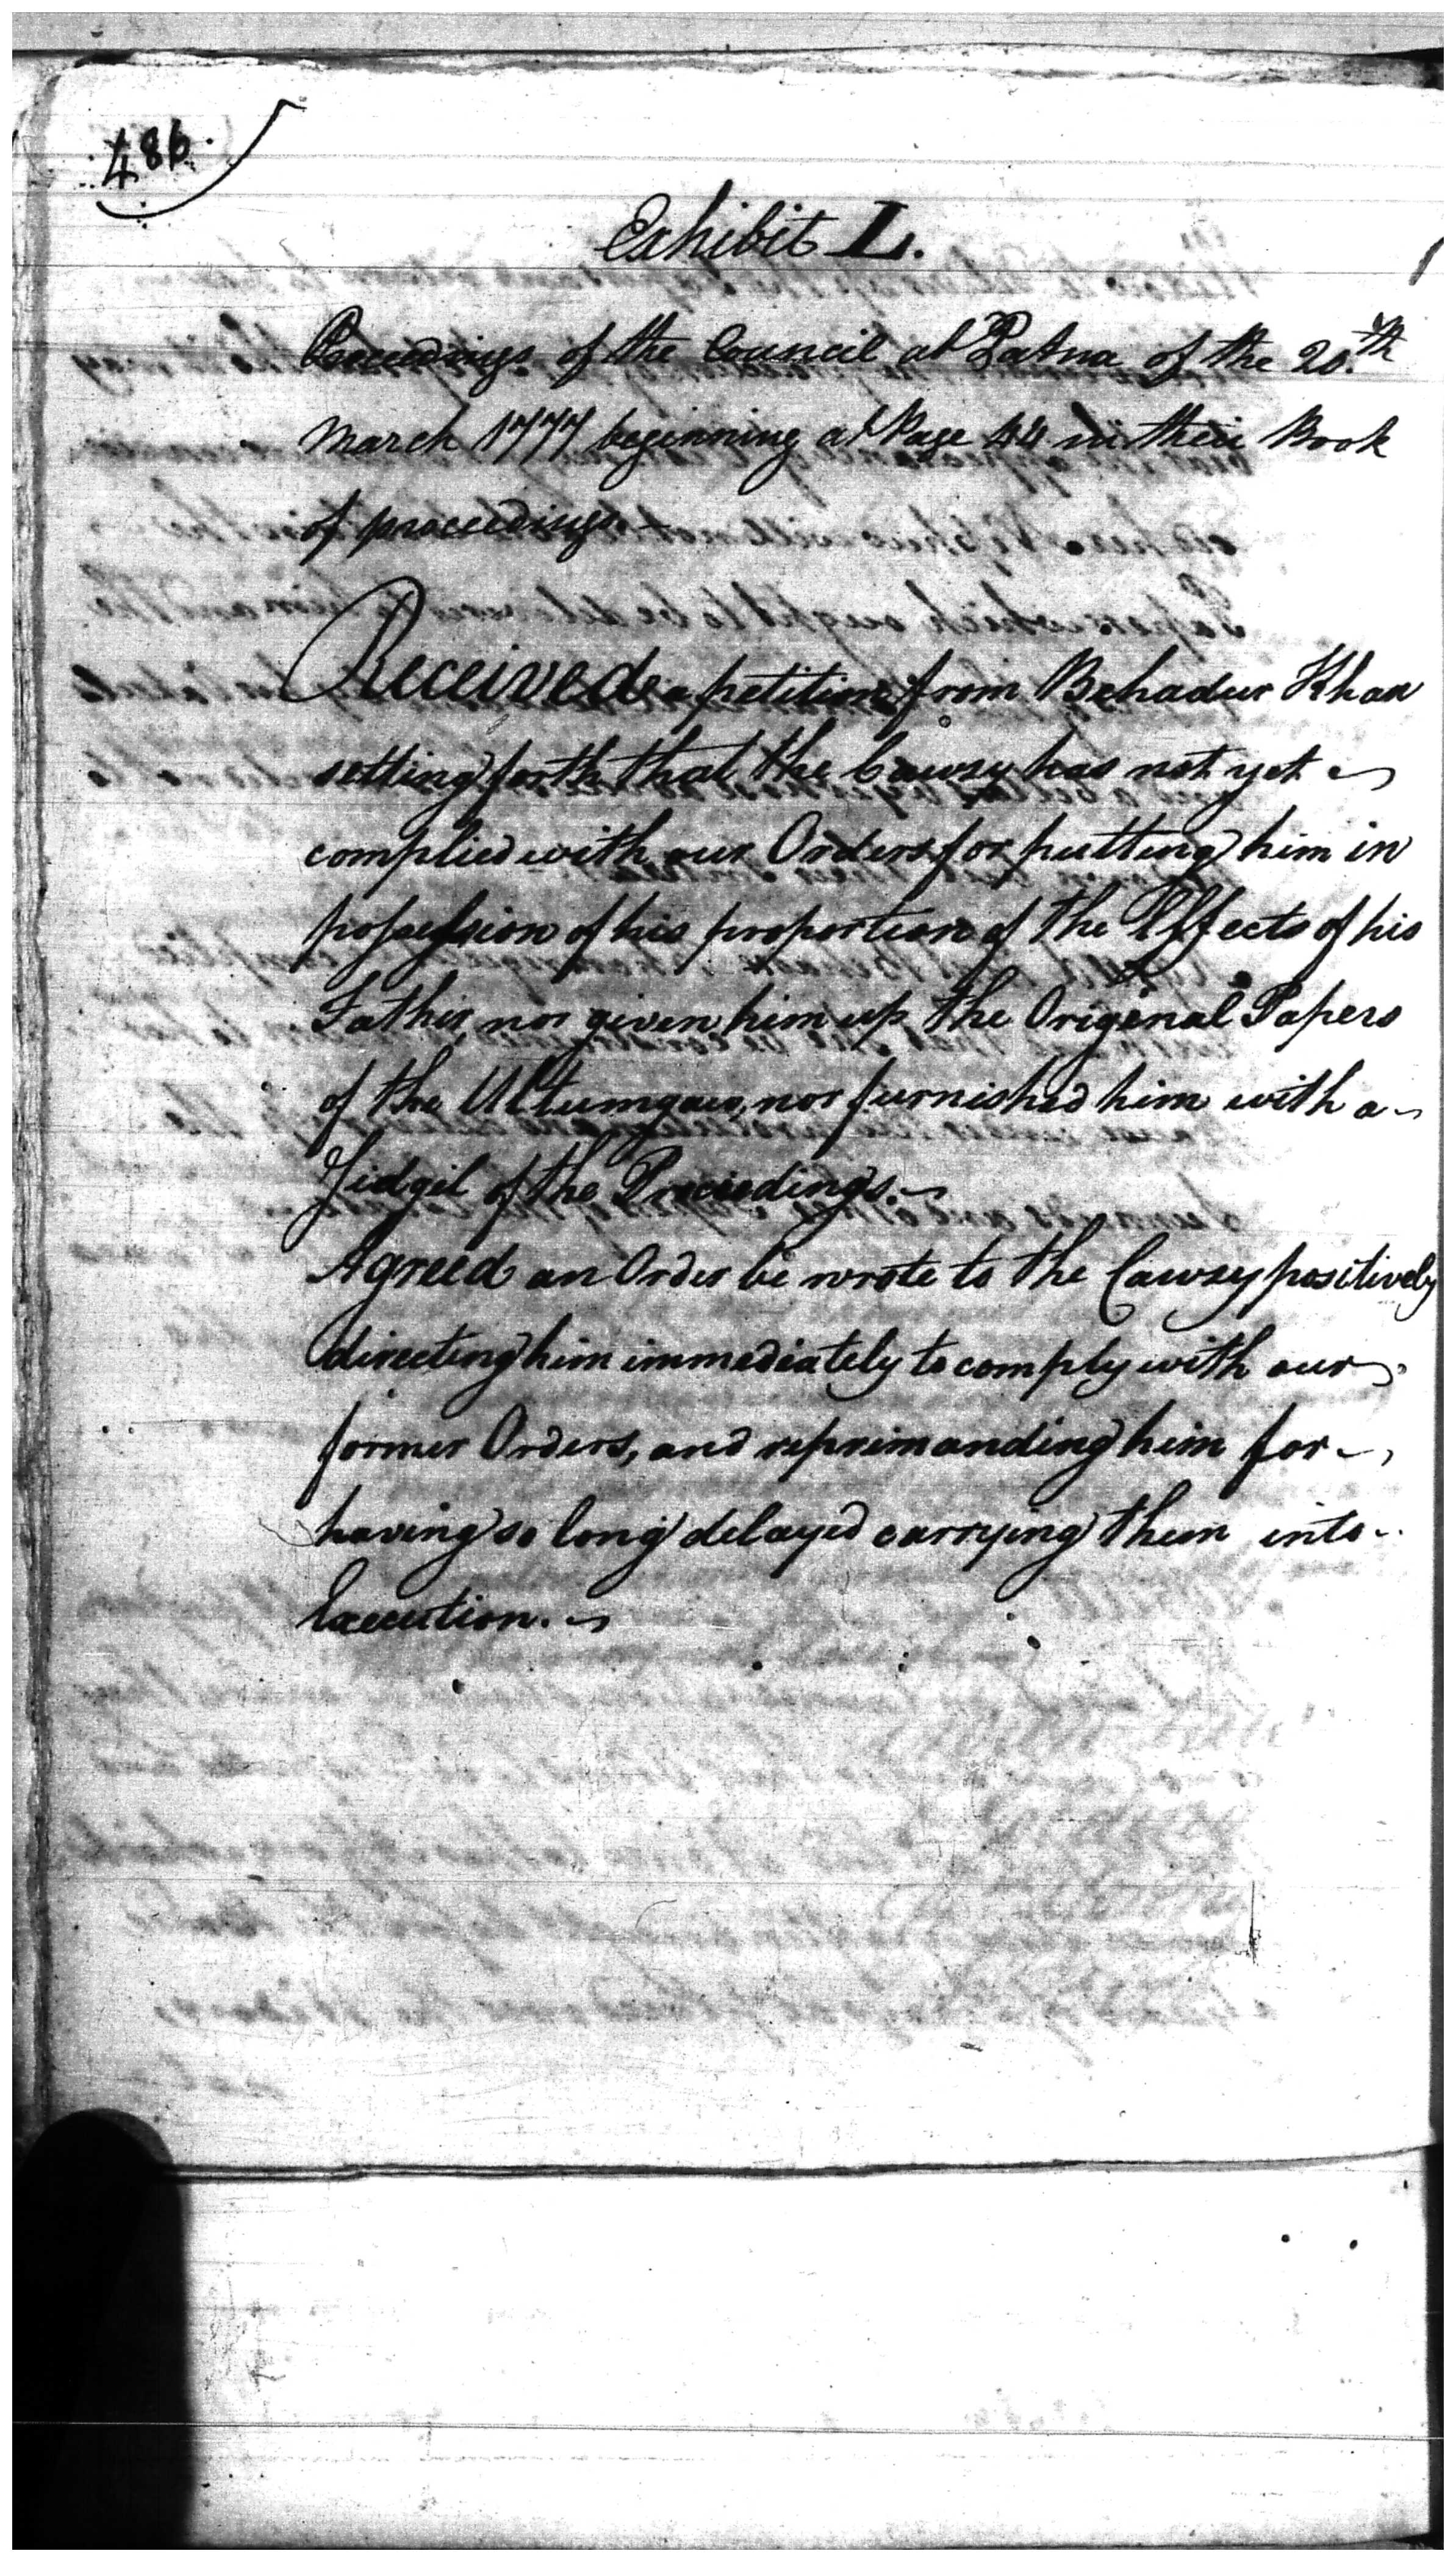 486.
Exhibit L.
Proceedings of the Council at Patna of the 20.th
March 1777 beginning at Page 44 in their Book
of proceedings.
Received a petition from Behadur Khan
setting forth that the Cawzy has not yet
complied with our Orders for putting him in
possession of his proportion of the Effects of his
Father, nor given him up the Original Papers
of the Ultumgaw, nor furnished him with a
of the Proceedings.
Agreed an Order be wrote to the Cawzy positively
directing him immediately to comply with our
former Orders, and reprimanding him for
having so long delayed carrying them into
Execution.